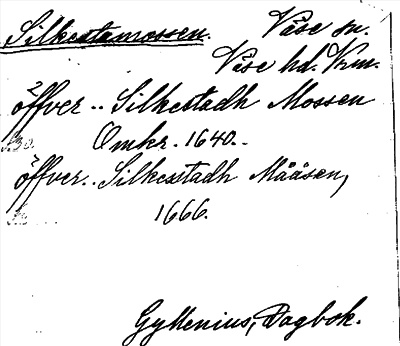 Silkestamossen. Väse sn.
Väse hd. Vrm.
öffver .. Silkestadh Mossen
Omkr. 1640..
öffver .. Silkesstadh Måâsen,
1666.
Gyllenius, Dagbok.